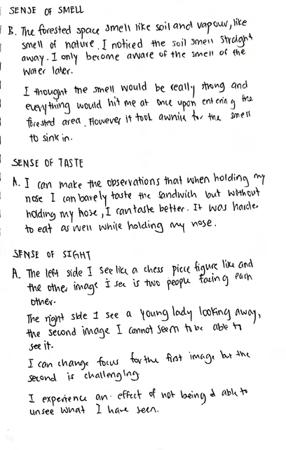 SENSE OF SMELL
B. The forested space smell like soil and vapour, like
smell of nature. I noticed the soil smell straight
away. I only become aware of the smell of the
water later.
I thought the smell would be really strong and
everything would hit me at once upon entering the
forested area. However it took awhile for the smell
to sink in.
SENSE OF TASTE
A. I can make the observations that when holding my
nose I can barely taste the sandwich but without
holding my nose, I can taste better. It was harder
to eat as well while holding my nose.
SENSE OF SIGHT
A. The left side I see like a chess piece figure like and
the other image I see is two people facing each
other.
The right side I see a young lady looking away,
the second image I cannot seem to be able to
see it.
I can change focus for the first image but the
second is challenging
I experience an effect of not being able to
unsee what I have seen.